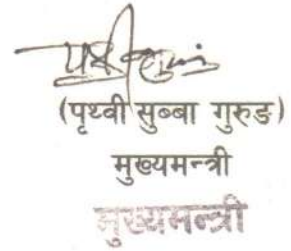 (पृथ्वी सुब्बा गुरुङ)
मुख्यमन्त्री
मुख्यमन्त्री